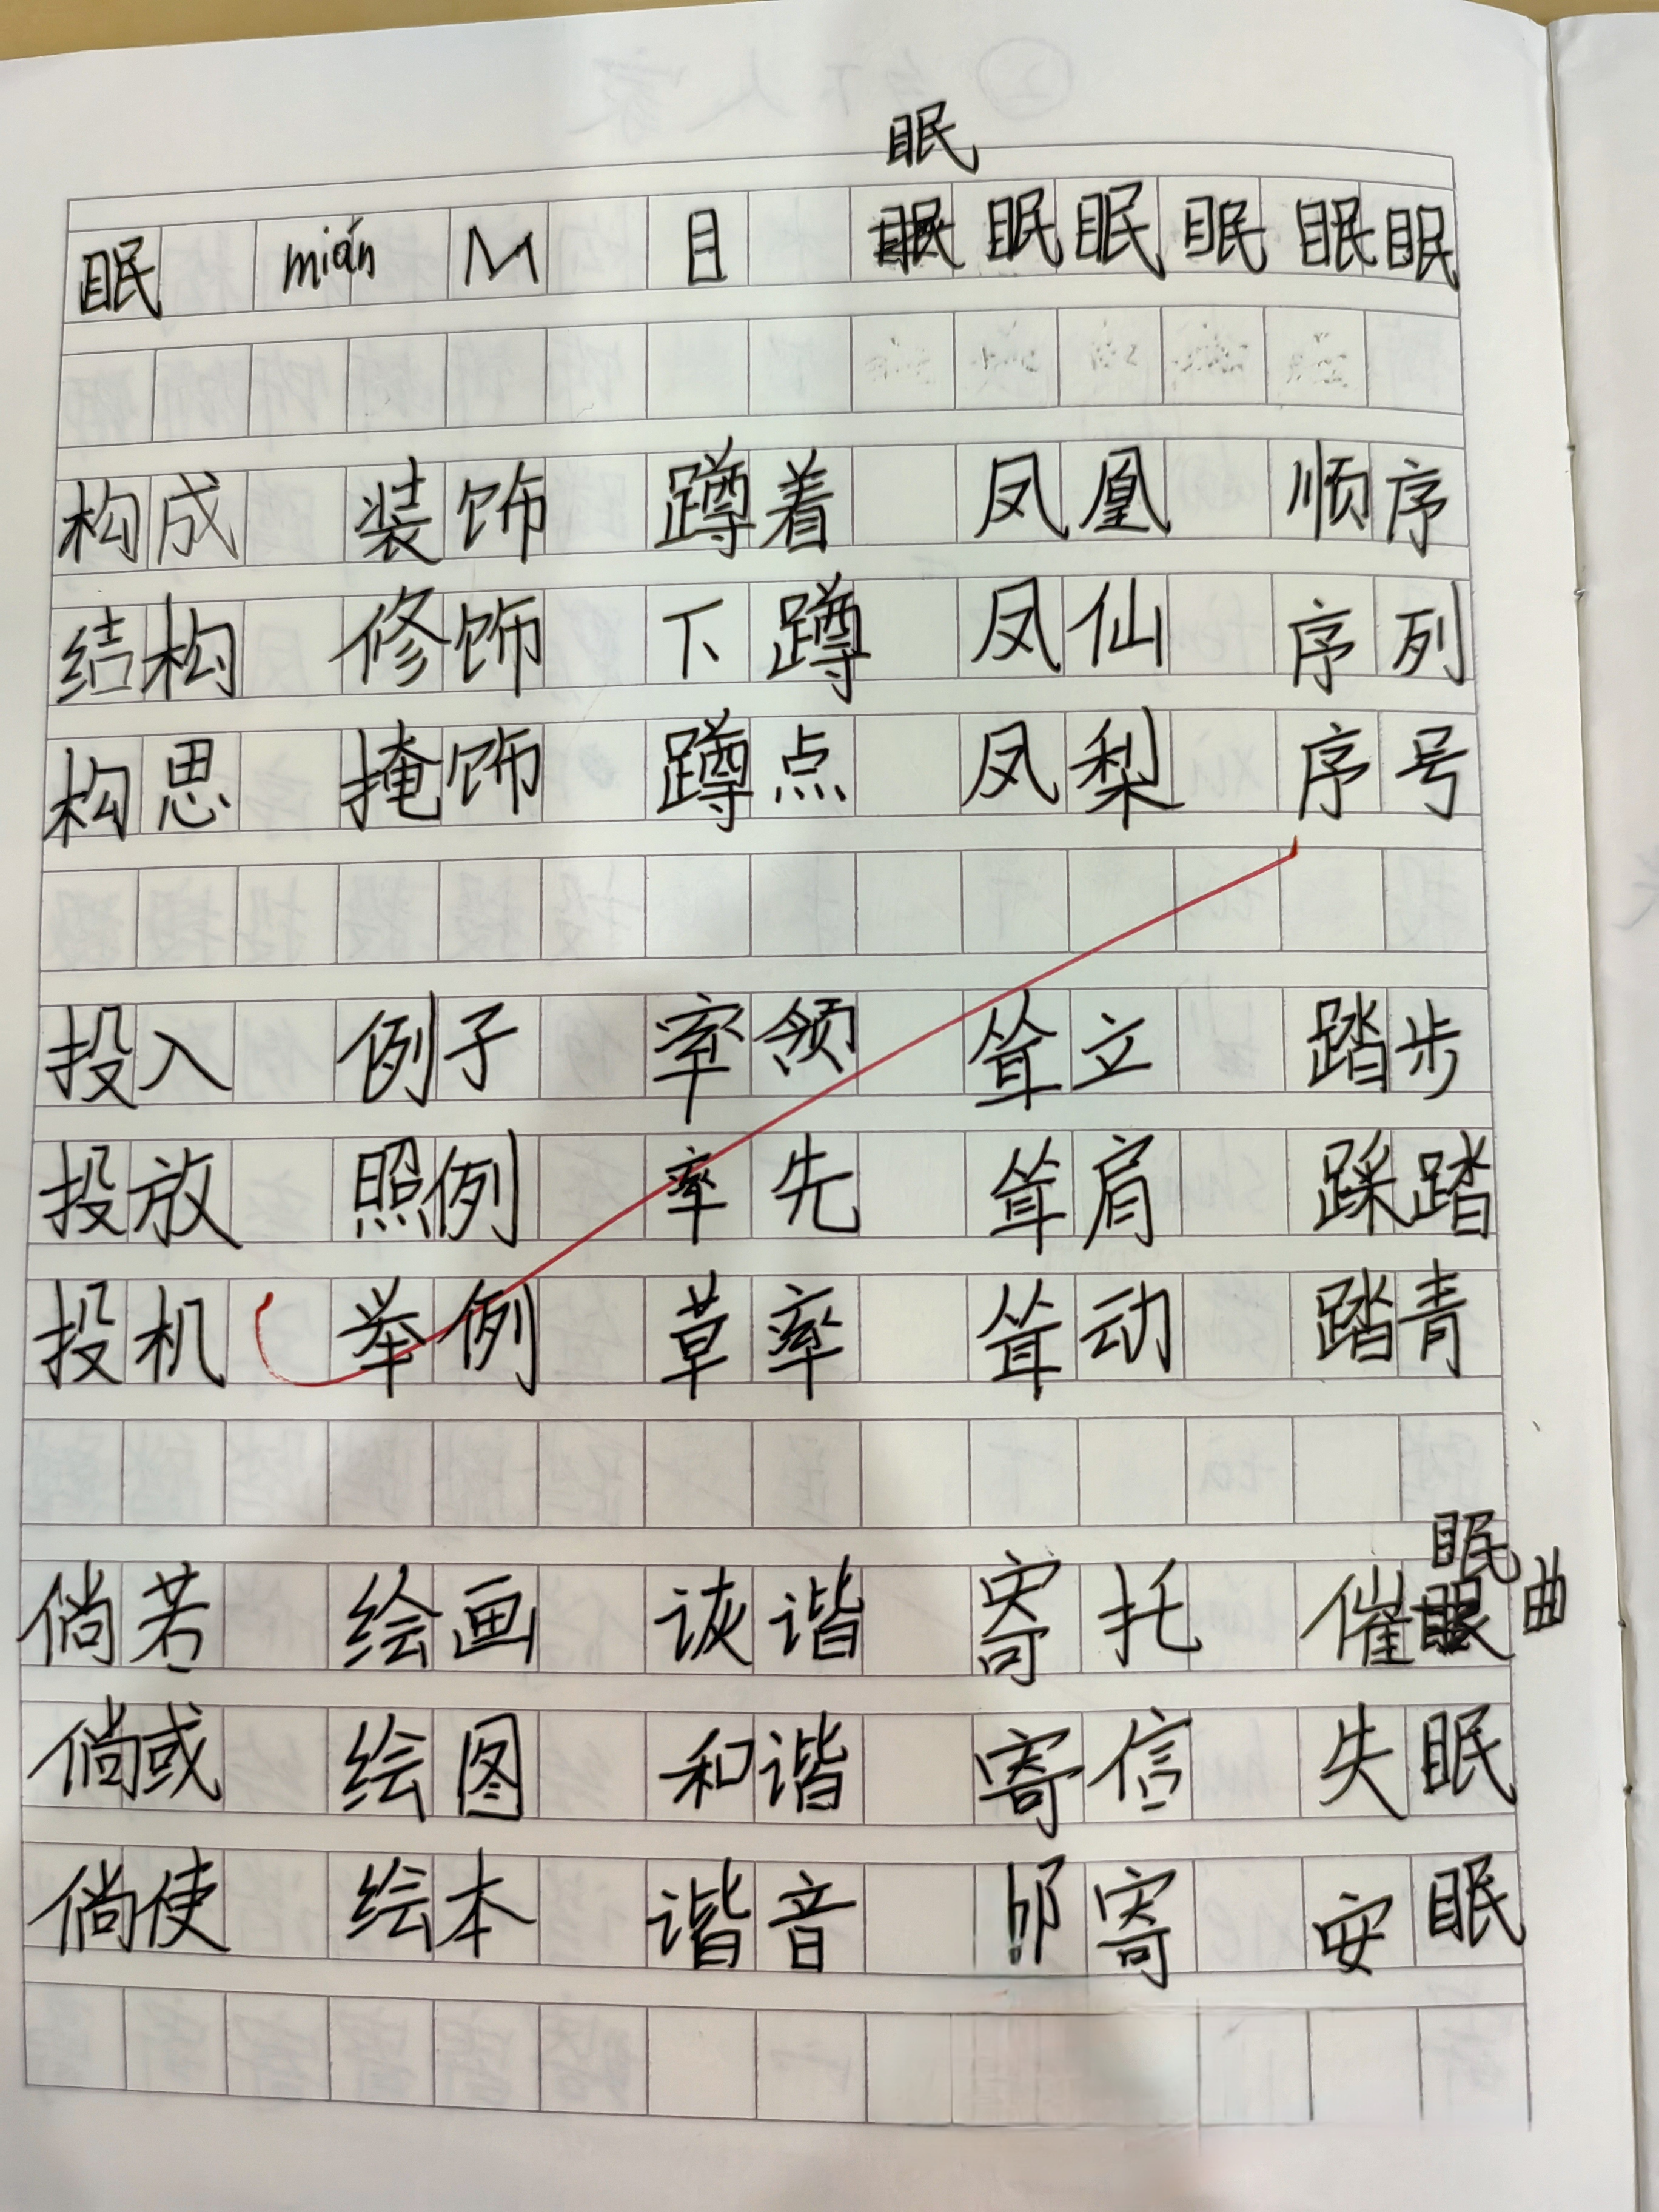 眠
眠 mián M 目 眠 眠 眠 眠 眠
构成 装饰 蹲着 凤凰 顺序
结构 修饰 下蹲 凤仙 序列
构思 掩饰 蹲点 凤梨 序号
投入 例子 率领 耸立 踏步
投放 照例 率先 耸肩 踩踏
投机 举例 草率 耸动 踏青
眠
倘若 绘画 诙谐 寄托 催 曲
倘或 绘图 和谐 寄信 失眠
倘使 绘本 谐音 寄 安眠